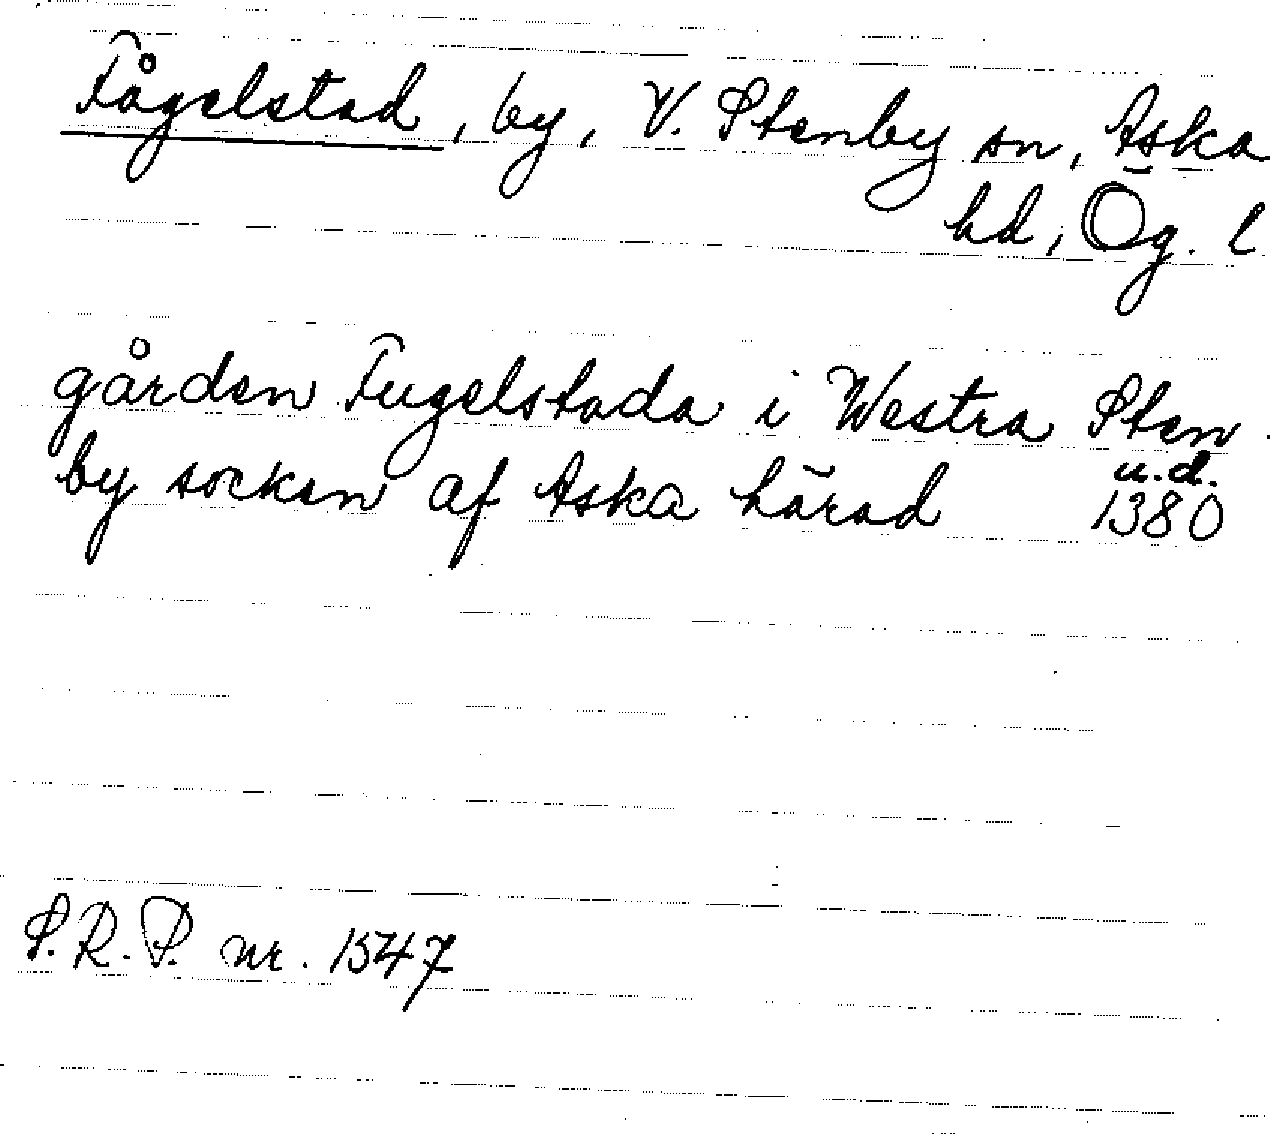 Fågelstad, by, V. Stenby sn, Aska
hd, Ög. l
gården Fugelstada i Westra Sten
by socken af Aska härad u.d.
1380
S.R.P. nr. 1547